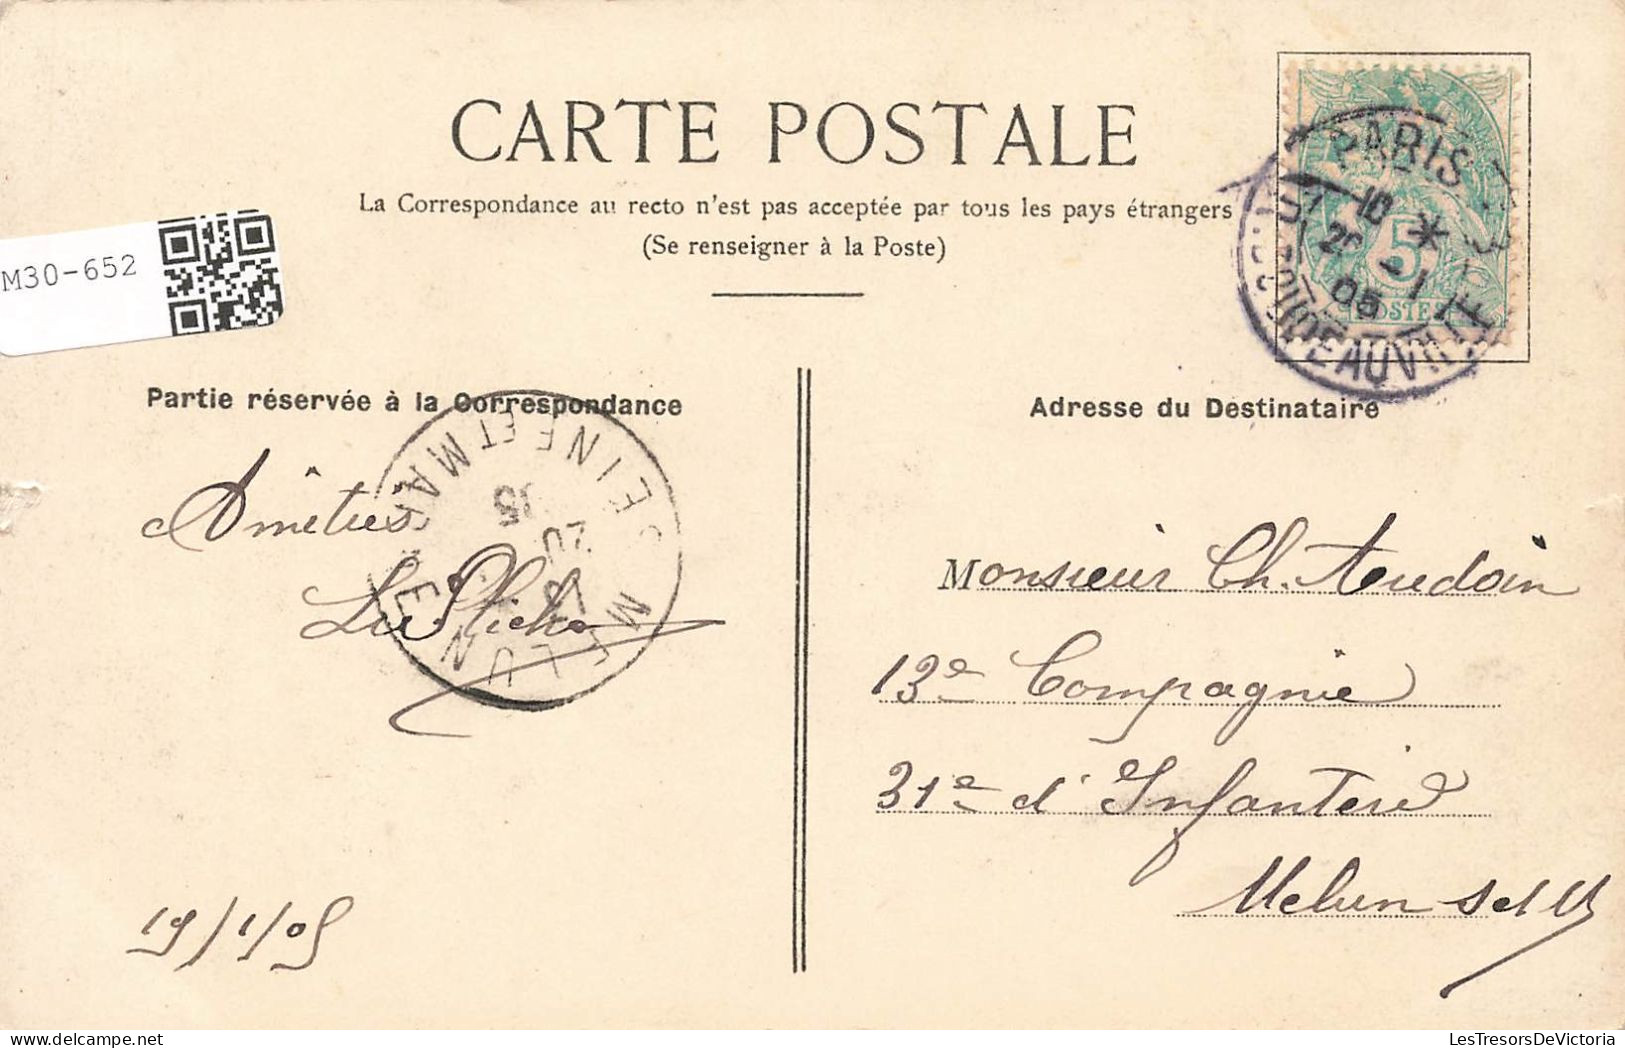 CARTE POSTALE
La Correspondance au recto n'est pas acceptée par tous les pays étrangers
(Se renseigner à la Poste)
M30-652
PARIS
10 *
-1
05
5
POSTES
Partie réservée à la Correspondance
Adresse du Destinataire
SEINE ET MARNE
MELUN
20
05
Amitiés
19/1/05
Monsieur Ch. Audoin
13e Compagnie
31e d'Infanterie
Melun S et M
LesTresorsDeVictoria